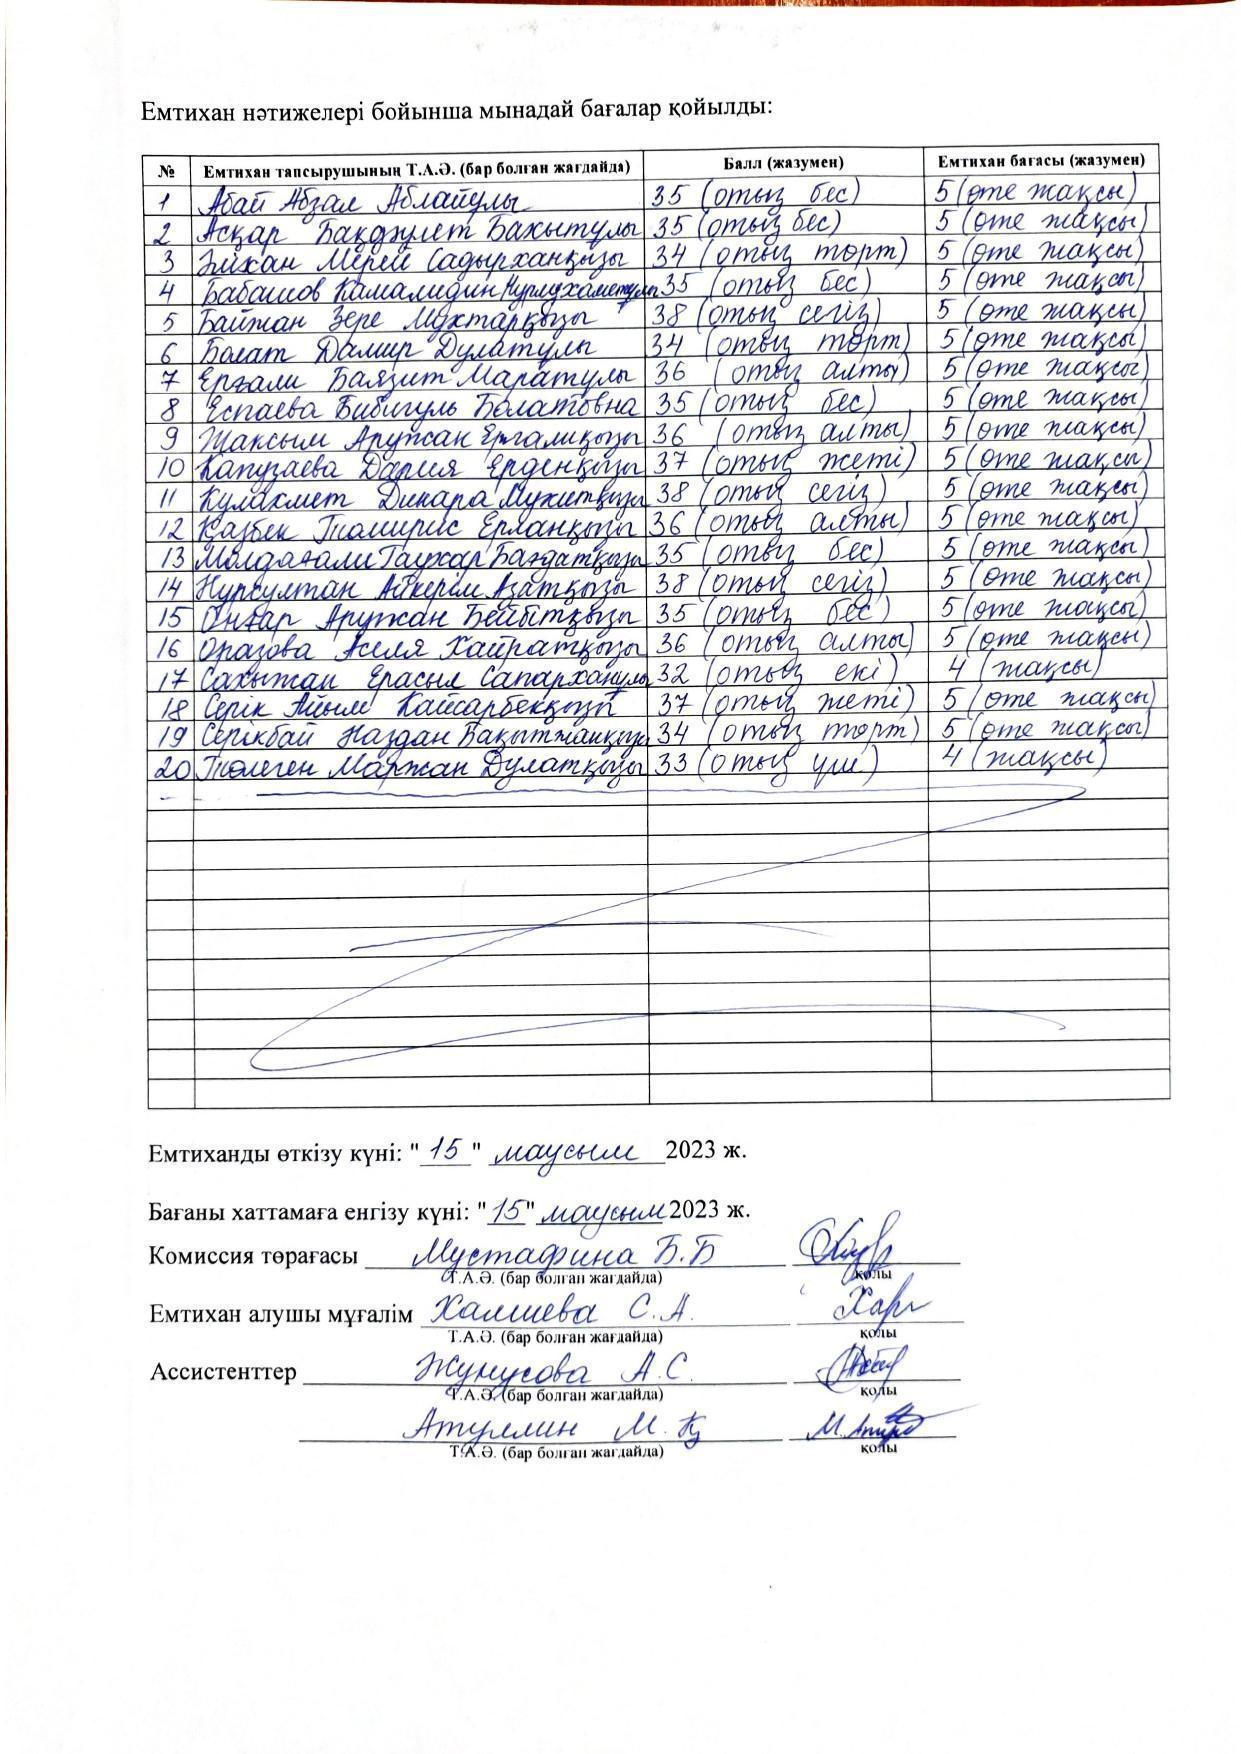 Емтихан нәтижелері бойынша мынадай бағалар қойылды:
№ Емтихан тапсырушының Т.А.Ә. (бар болған жағдайда) Балл (жазумен) Емтихан бағасы (жазумен)
1 Абай Абзал Аблайұлы 35 (отыз бес) 5 (өте жақсы)
2 Асқар Бақдәулет Бахытұлы 35 (отыз бес) 5 (өте жақсы)
3 Әлихан Мерей Садырханқызы 34 (отыз төрт) 5 (өте жақсы)
4 Бабашов Камалидин Нурмухаметұлы 35 (отыз бес) 5 (өте жақсы)
5 Байжан Зере Мұхтарқызы 38 (отыз сегіз) 5 (өте жақсы)
6 Болат Дамир Дулатулы 34 (отыз төрт) 5 (өте жақсы)
7 Ерғали Баязит Маратулы 36 (отыз алты) 5 (өте жақсы)
8 Еспаева Бибигуль Болатовна 35 (отыз бес) 5 (өте жақсы)
9 Жаксым Аружан Ергалиқызы 36 (отыз алты) 5 (өте жақсы)
10 Капузаева Дария Ерденқызы 37 (отыз жеті) 5 (өте жақсы)
11 Кулахмет Динара Мухитқызы 38 (отыз сегіз) 5 (өте жақсы)
12 Қазбек Томирис Ерланқызы 36 (отыз алты) 5 (өте жақсы)
13 Молдағали Гаухар Бағдатқызы 35 (отыз бес) 5 (өте жақсы)
14 Нурсултан Айкерім Азатқызы 38 (отыз сегіз) 5 (өте жақсы)
15 Оңғар Аружан Бейбітқызы 35 (отыз бес) 5 (өте жақсы)
16 Оразова Аселя Хайратқызы 36 (отыз алты) 5 (өте жақсы)
17 Сахытжан Ерасыл Сапарханулы 32 (отыз екі) 4 (жақсы)
18 Серік Айым Кайсарбекқызы 37 (отыз жеті) 5 (өте жақсы)
19 Серікбай Наздан Бақытжанқызы 34 (отыз төрт) 5 (өте жақсы)
20 Төлеген Маржан Дулатқызы 33 (отыз үш) 4 (жақсы)
Емтиханды өткізу күні: "15" маусым 2023 ж.
Бағаны хаттамаға енгізу күні: "15" маусым 2023 ж.
Комиссия төрағасы Мустафина Б.Б
Т.А.Ә. (бар болған жағдайда) қолы
Емтихан алушы мұғалім Халиева С.А.
Т.А.Ә. (бар болған жағдайда) қолы
Ассистенттер Жунусова А.С.
Т.А.Ә. (бар болған жағдайда) қолы
М. Қ
Т.А.Ә. (бар болған жағдайда) қолы